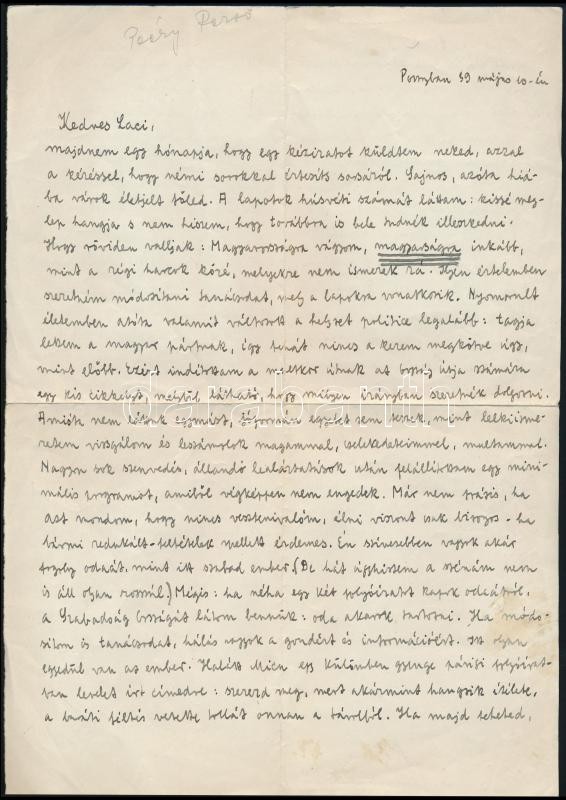 Peéry Rezső
Pozsonyban 39 május 10-én
Kedves Laci,
majdnem egy hónapja, hogy egy kéziratot küldtem neked, azzal
a kéréssel, hogy némi sorokkal értesíts sorsáról. Sajnos, azóta hiá-
ba várok életjelt tőled. A lapotok húsvéti számát láttam: kissé meg-
lep hangja s nem hiszem, hogy továbbra is bele tudnék illeszkedni.
Hogy röviden valljak: Magyarországra vágyom, magyarságra inkább,
mint a régi harcok közé, melyekre nem ismerek rá. Ilyen értelemben
szeretném módosítani tanácsodat, mely a lapokra vonatkozik. Nyomorult
életemben azóta valamit változott a helyzet politice legalább: tagja
lettem a magyar pártnak, így tehát nincs a kezem megkötve úgy,
mint előbb. Ezért indítottam a mellékelt útnak az ország útja számára
egy kis cikkecskét melyből látható, hogy milyen irányban szeretnék dolgozni.
Amióta nem láttuk egymást, jóformán egyebet sem teszek, mint lelkiisme-
retem vizsgálom és leszámolok magammal, cselekedeteimmel, multammal.
Nagyon sok szenvedés, állandó lealáztatások után felállítottam egy mini-
mális programot, amiből végképpen nem engedek. Már nem frázis, ha
azt mondom, hogy nincs vesztenivalóm, élni viszont csak bizonyos - ha
bármi redukált - feltételek mellett érdemes. Én szívesebben vagyok akár
fogoly odaát, mint itt szabad ember. (De hát úgyhiszem a szénám nem
is áll olyan rosszul.) Mégis: ha néha egy két folyóiratot kapok odaátról,
a Szabadság Országát látom bennük: oda akarok tartozni. Ha módo-
sítom is tanácsodat, hálás vagyok a gondért és információért. Itt olyan
egyedül van az ember. Halász Micu egy különben gyenge párisi folyóirat-
ban levelet írt címedre: szerezd meg, mert akármint hangzik ítélete,
a baráti féltés vezette tollát onnan a távolból. Ha majd teheted,